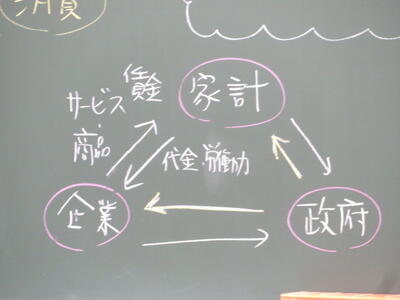 消費
賃金
家計
サービス
・
商品
代金・労働力
企業
政府